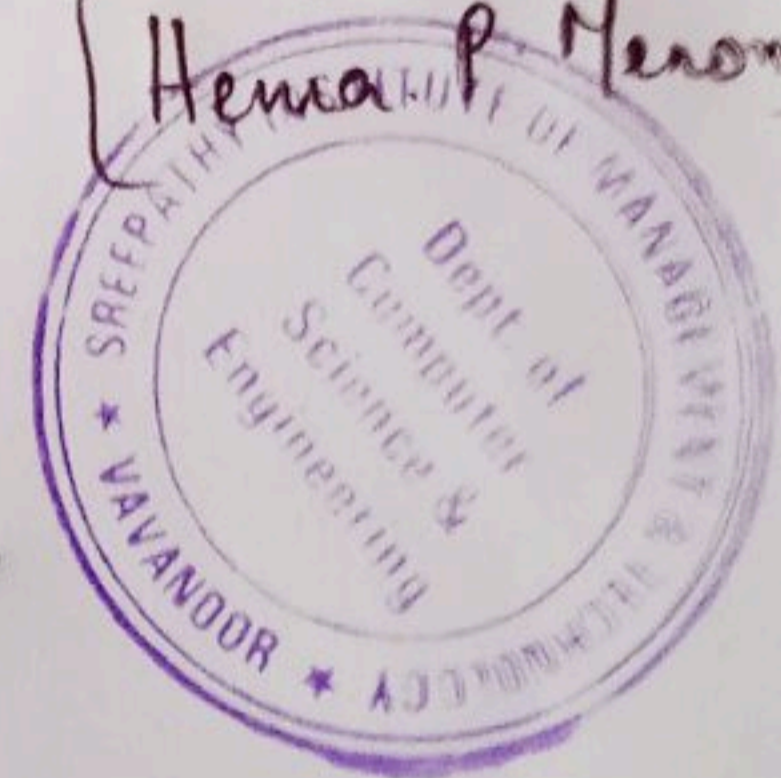 (Hema P Menon
SREEPATHY INSTITUTE OF MANAGEMENT & TECHNOLOGY
★ VAVANOOR ★
Dept. of
Computer
Science &
Engineering